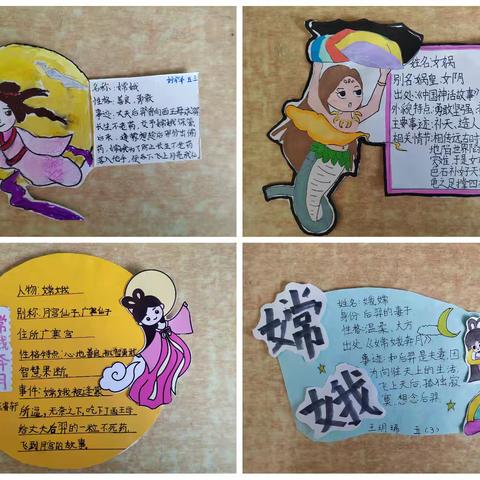 名称:嫦娥
性格:善良,勇敢
事迹:丈夫后羿曾向西王母求得
长生不老药,交于嫦娥保管
药,嫦娥为了防止长生不老药
落入他手,便吞下飞上月宫成仙
姓名:女娲
别名:娲皇,女阴
出处:《中国神话故事》
外貌特点:勇敢坚强,
主要事迹:补天,造人
相关情节:相传远古时
色石补好天
龟之足撑四
人物:嫦娥
别称:月宫仙子,广寒仙子
住所:广寒宫
性格特点:心地善良,机智勇敢
智慧果断。
事件:嫦娥被逢蒙
所逼,无奈之下,吃下了西王母
给丈夫后羿的一粒不死药,
飞到月宫的故事。
嫦娥奔月
嫦娥
姓名:娥嫦
身份:后羿的妻子
性格:温柔、大方
出处:《嫦娥奔月》
事迹:和后羿是夫妻,因
为向往天上的生活,
飞上天后,孤独寂
寞,想念后羿
五(3)